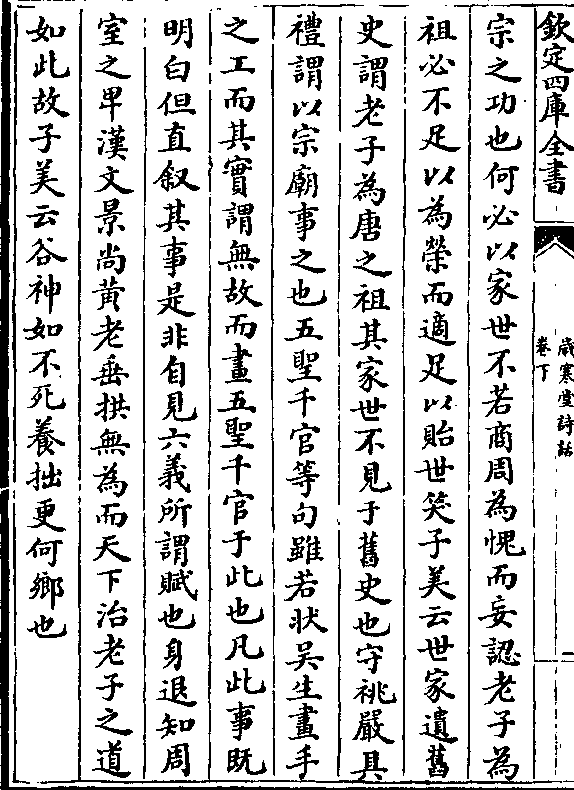 欽定四庫全書
歲寒堂詩話
卷下
一
宗之功也何必以家世不若商周為愧而妄認老子為
祖必不足以為榮而適足以貽世笑子美云世家遺舊
史謂老子為唐之祖其家世不見于舊史也守祧嚴具
禮謂以宗廟事之也五聖千官等句雖若狀吳生畫手
之工而其實謂無故而畫五聖千官于此也凡此事既
明白但直叙其事是非自見六義所謂賦也身退知周
室之卑漢文景尚黄老垂拱無為而天下治老子之道
如此故子美云谷神如不死養拙更何鄉也